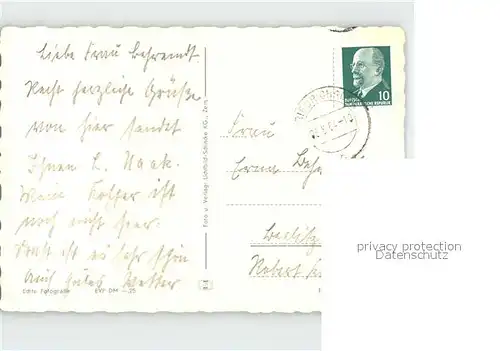 Liebe Frau Behrendt.
Recht herzliche Grüße
von hier sendet
Ihnen L. Noak.
Mein Koffer ist
noch nicht hier.
Sonst ist es sehr schön
Auch gutes Wetter
Echte Fotografie
Foto u. Verlag: Lichtbild-Schincke KG., Zeitz
10
DEUTSCHE
DEMOKRATISCHE REPUBLIK
Frau
Erna
Robert
privacy protection
Datenschutz